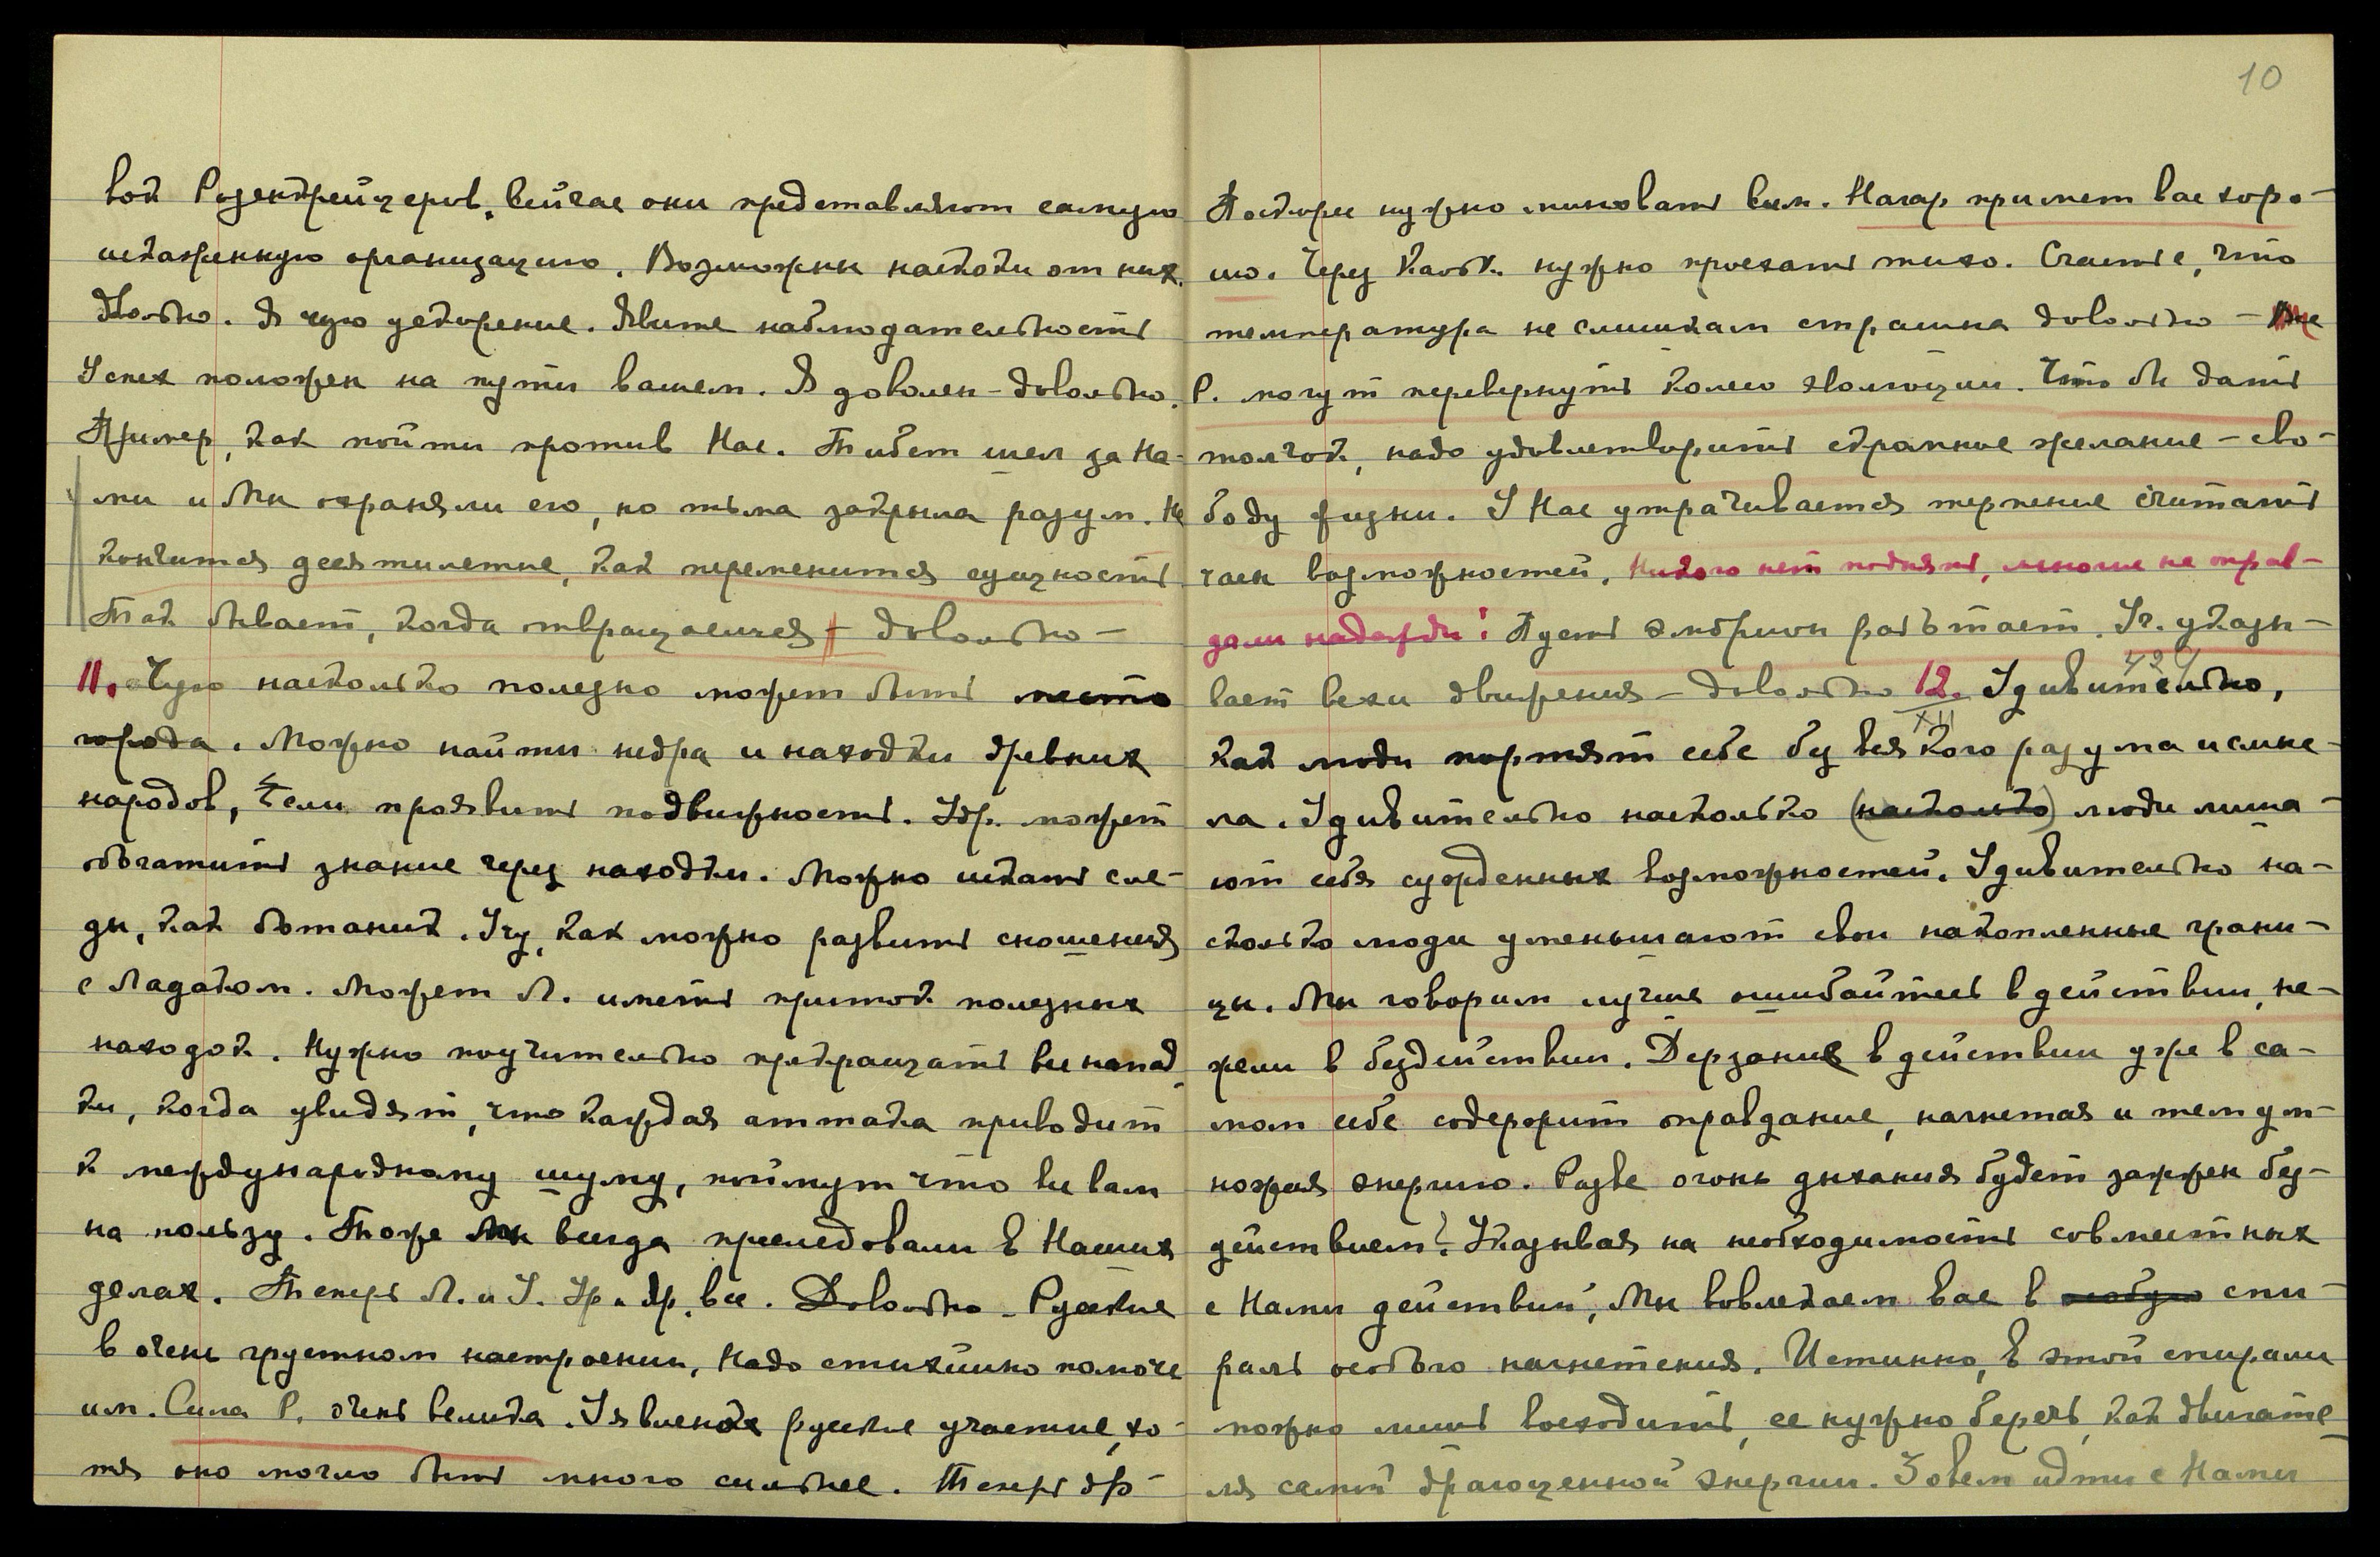 вой Розенкрейцеров. Сейчас они представляют самую
искаженную организацию. Возможны наскоки от них.
Довольно. Я чую ускорение. Явите наблюдательность
Успех положен на пути вашем. Я доволен – довольно.
Пример, как пойти против Нас. Тибет шел за На-
ми и Мы охраняли его, но тьма закрыла разум. Не
кончится десятилетие, как переменится сущность
Так бывает, когда отвращаешься – довольно –
11. Чую насколько полезно может быть место
города. Можно найти недра и находки древних
народов, если проявить подвижность. Удр. может
обогатить знание через находки. Можно искать сле-
ды, как ботаник. Учу, как можно развить сношения
с Ладаком. Может Л. иметь приток полезных
находок. Нужно поучительно прекращать все напад
ки, когда увидят, что каждая аттака приводит
к международному шуму, поймут что все вам
на пользу. Тоже Мы всегда преследовали в Наших
делах. Теперь Л. и У. Ур. и Др. все. Довольно – Русские
в очень грустном настроении, надо стихийно помочь
им. Сила Р. очень велика. Уявлено русское участие, хо-
тя оно могло быть много сильнее. Теперь др-
10
Поскорее нужно миновать Сим. Нагар примет вас хоро-
шо. Через Кальк. нужно проехать тихо. Счастье, что
температура не слишком страшна довольно – Все
Р. могут перевернуть колесо эволюции. Что бы дать
толчок, надо удовлетворить скромное желание – сво-
боду физки. У Нас утрачивается терпение считать
часы возможностей. Никого нет поднять, многие не оправ-
дали надежды! Пусть эмбрион работает. Уч. указы-
вает вехи движения – довольно 12. Удивительно,
XII
как люди портят себе без всякого разума и смысл-
ла. Удивительно насколько (насколько) люди лиша-
ют себя сужденных возможностей. Удивительно на-
сколько люди уменьшают свои накопленные грани-
цы. Мы говорим лучше ошибайтесь в действии, не-
жели в бездействии. Дерзание в действии уже в са-
мом себе содержит оправдание, нагнетая и тем ум-
ножая энергию. Разве огонь дыхания будет зажжен без-
действием? Указывая на необходимость совместных
с Нами действий, Мы вовлекаем вас в особую спи-
раль особого нагнетения. Истинно, в этой спирали
можно лишь восходить, ее нужно беречь, как двигате
ля самой драгоценной энергии. Зовем идти с Нами